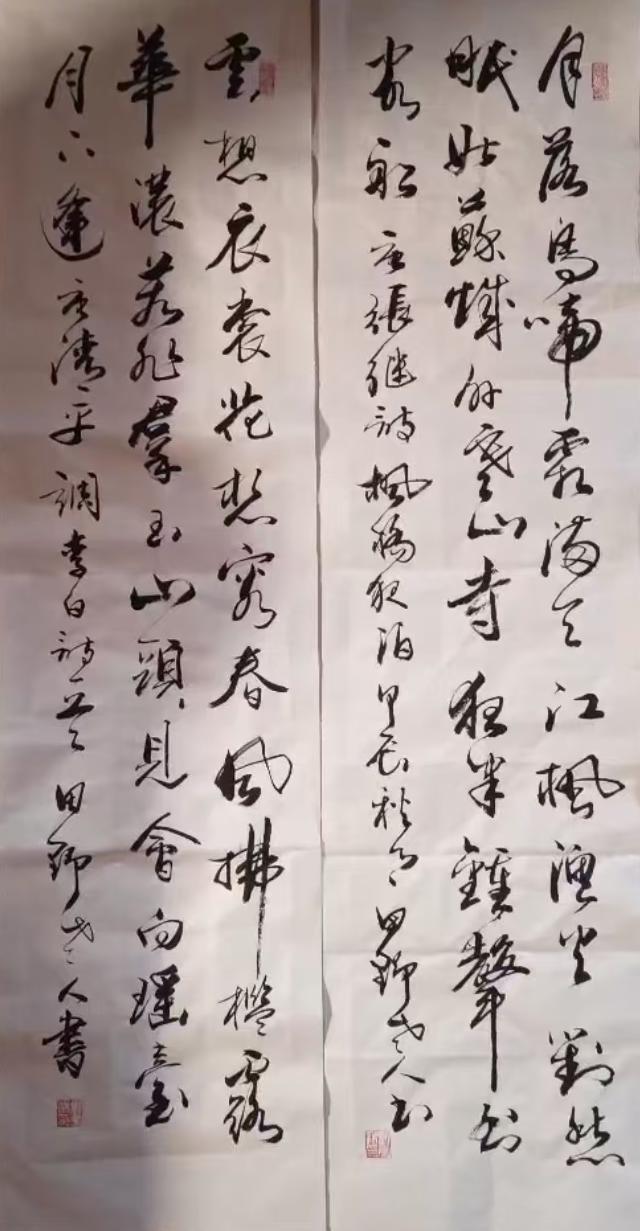 月落烏啼霜滿天江楓漁火對愁
眠姑蘇城外寒山寺夜半鐘聲到
客船唐張继詩楓橋夜泊甲辰秋月田野老人书
雲想衣裳花想容春風拂檻露
華濃若非羣玉山頭見會向瑶臺
月下逢唐清平調李白詩田野老人書